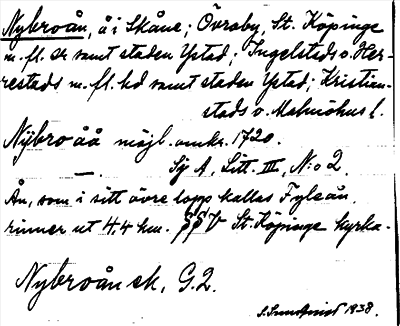 Nybroån, å i Skåne; Övraby, St. Köpinge
m. fl. sr samt staden Ystad; Ingelstads o. Her-
restads m. fl. hd samt staden Ystad; Kristian-
stads o. Malmöhus l.
Nÿbro åå möjl. omkr. 1720.
— Sj A, Litt. III, N:o 2
Ån, som i sitt övre lopp kallas Fyleån,
rinner ut 4,4 km. V St. Köpinge kyrka.
Nybroån ek, G.2.
1938.